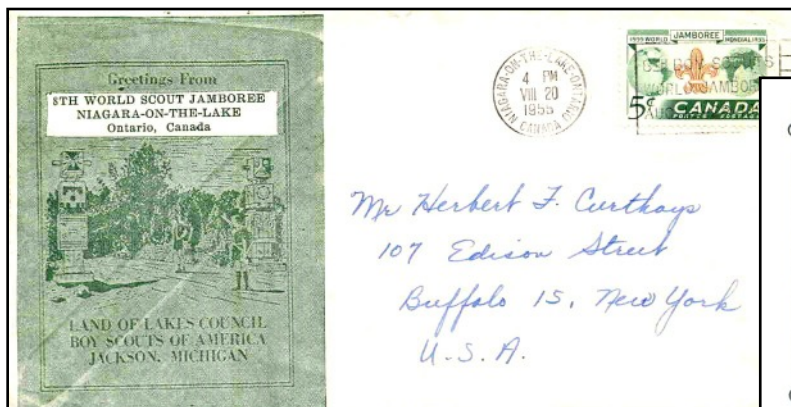 Greetings From
8TH WORLD SCOUT JAMBOREE
NIAGARA-ON-THE-LAKE
Ontario, Canada
LAND OF LAKES COUNCIL
BOY SCOUTS OF AMERICA
JACKSON, MICHIGAN
NIAGARA-ON-THE-LAKE-ONTARIO
4 PM
VIII 20
1955
CANADA
1955 WORLD JAMBOREE MONDIAL 1955
8TH BOY SCOUTS
WORLD JAMBOR
AUG
5¢ CANADA
POSTES POSTAGE
Mr Herbert F. Curthoys
107 Edison Street
Buffalo 15, New York
U.S.A.